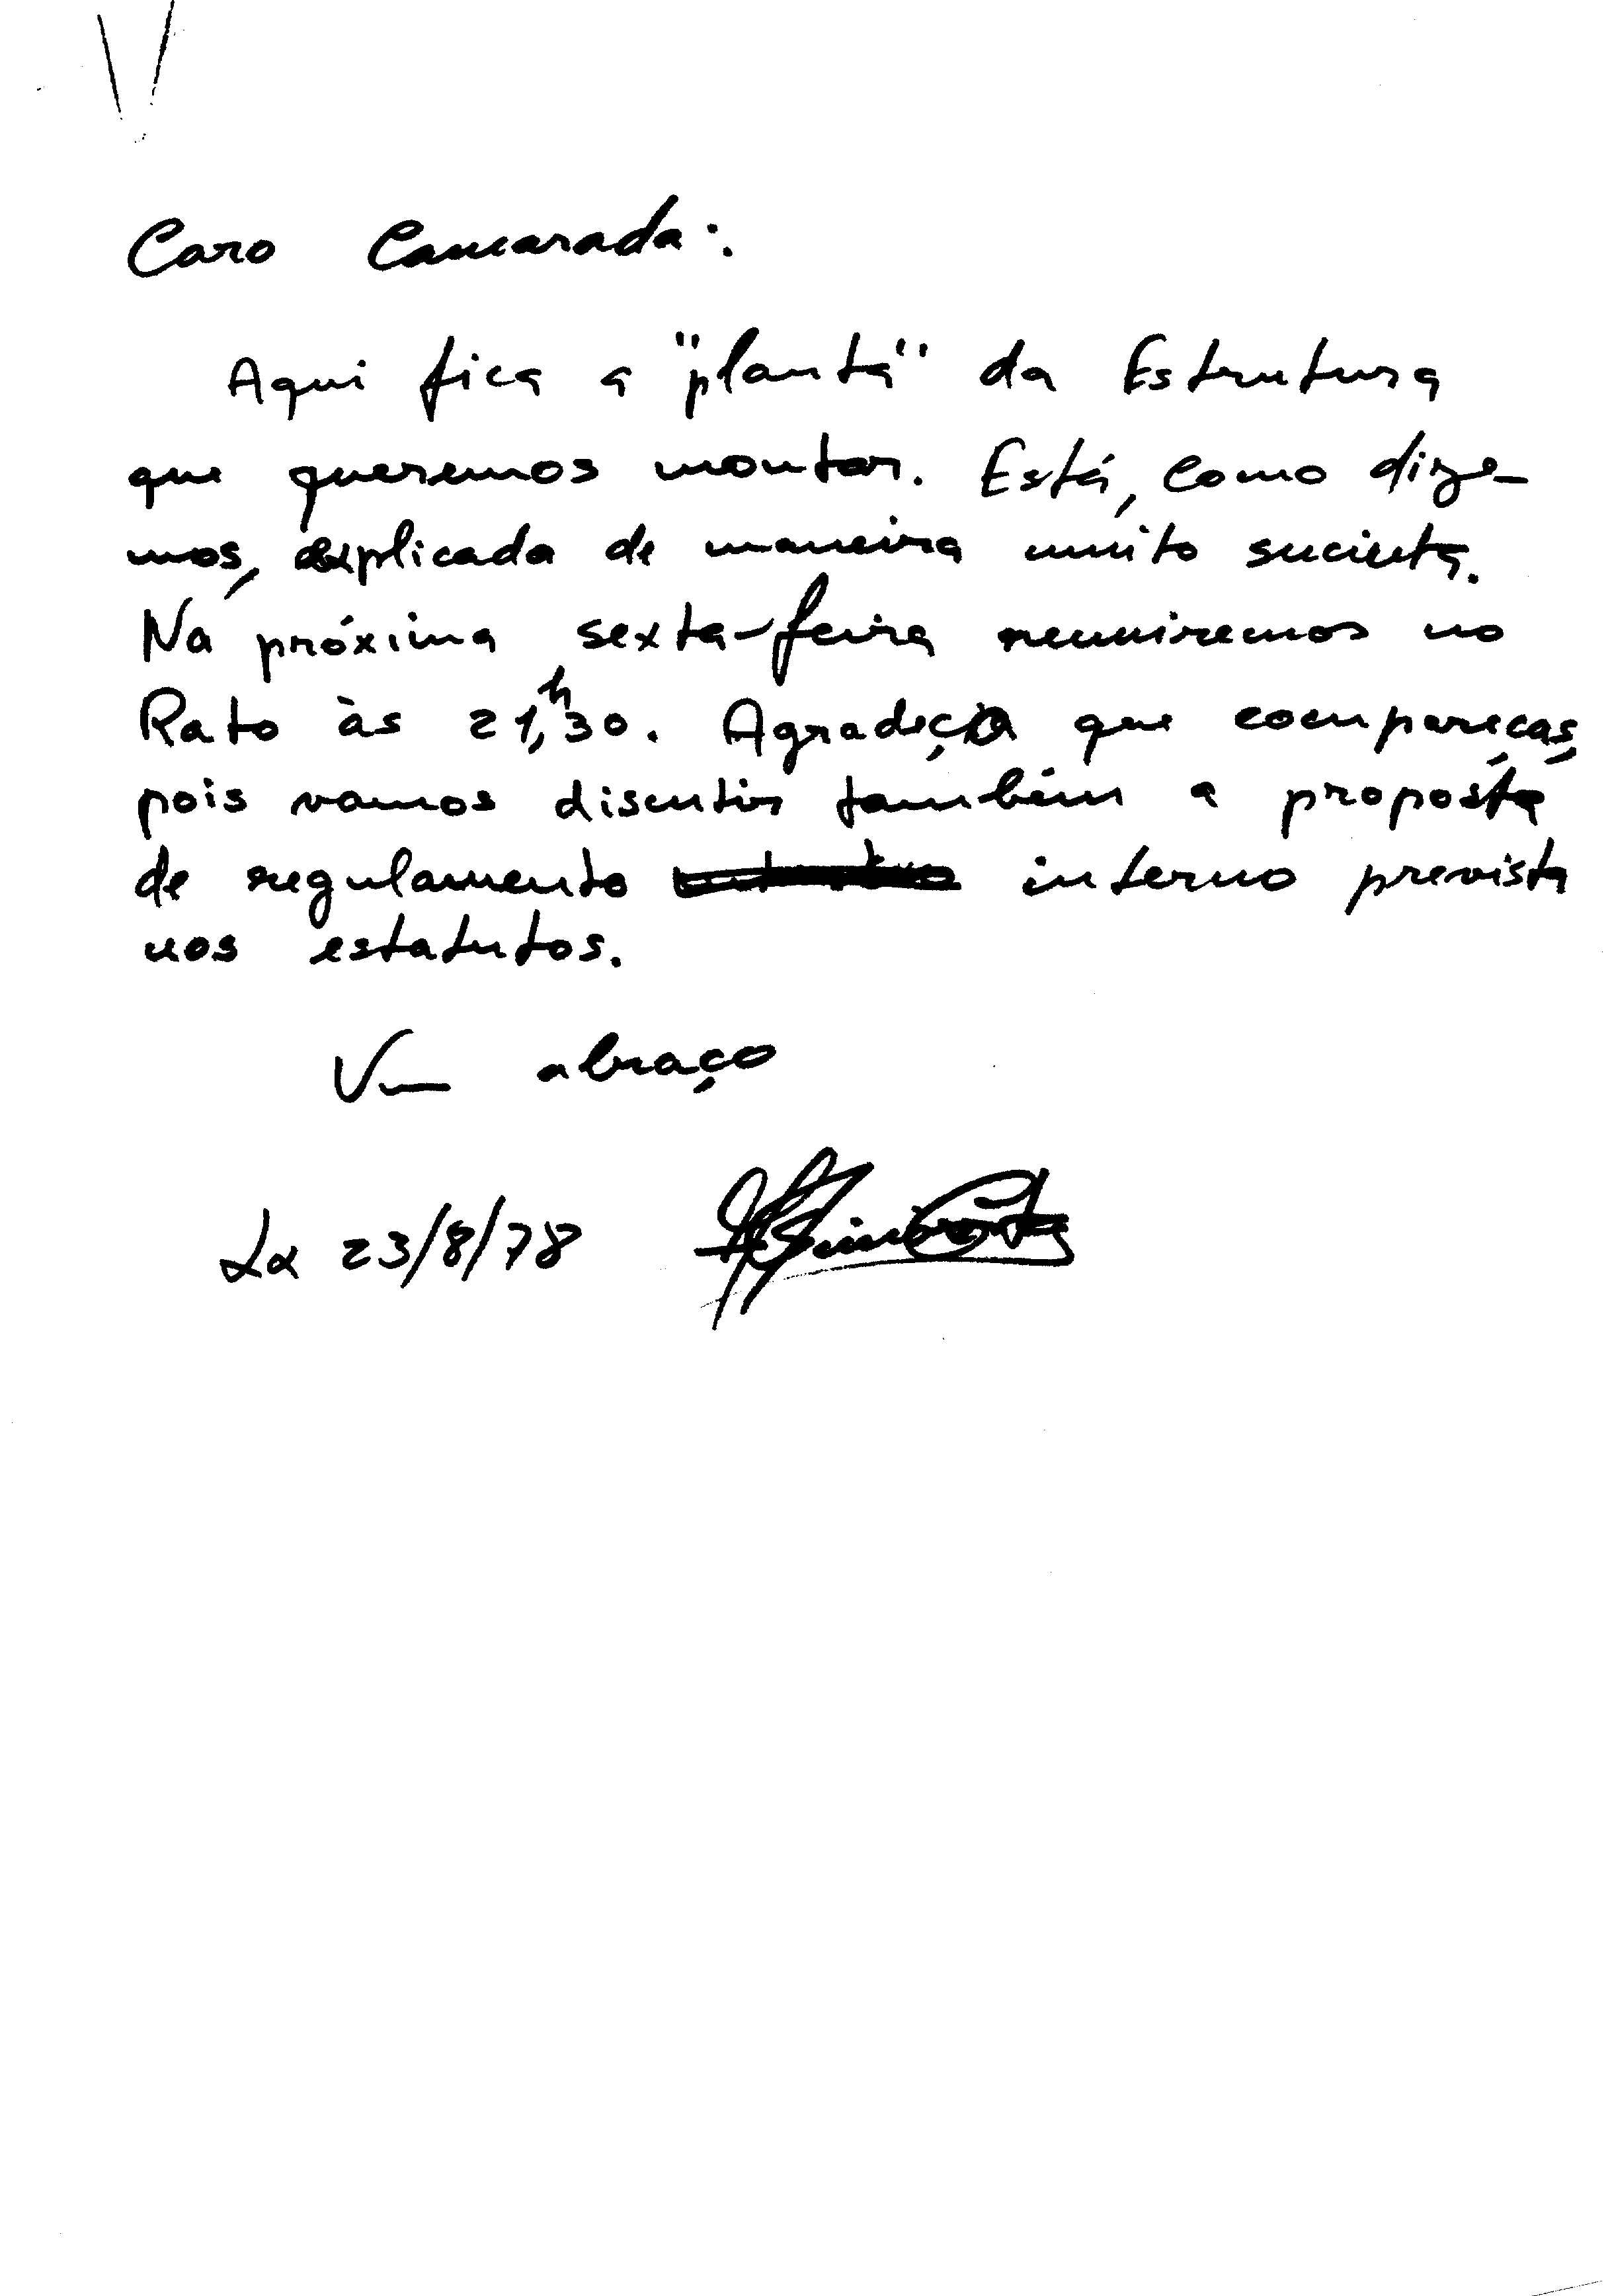 Caro Camarada:
Aqui fica a "planta" da Estrutura
que queremos montar. Está, como dize-
mos, explicada de maneira muito sucinta.
Na próxima sexta-feira reuniremos no
Rato às 21,h30. Agradeço que compareças,
pois vamos discutir também a proposta
de regulamento interno prevista
nos estatutos.
Um abraço
Lx 23/8/78